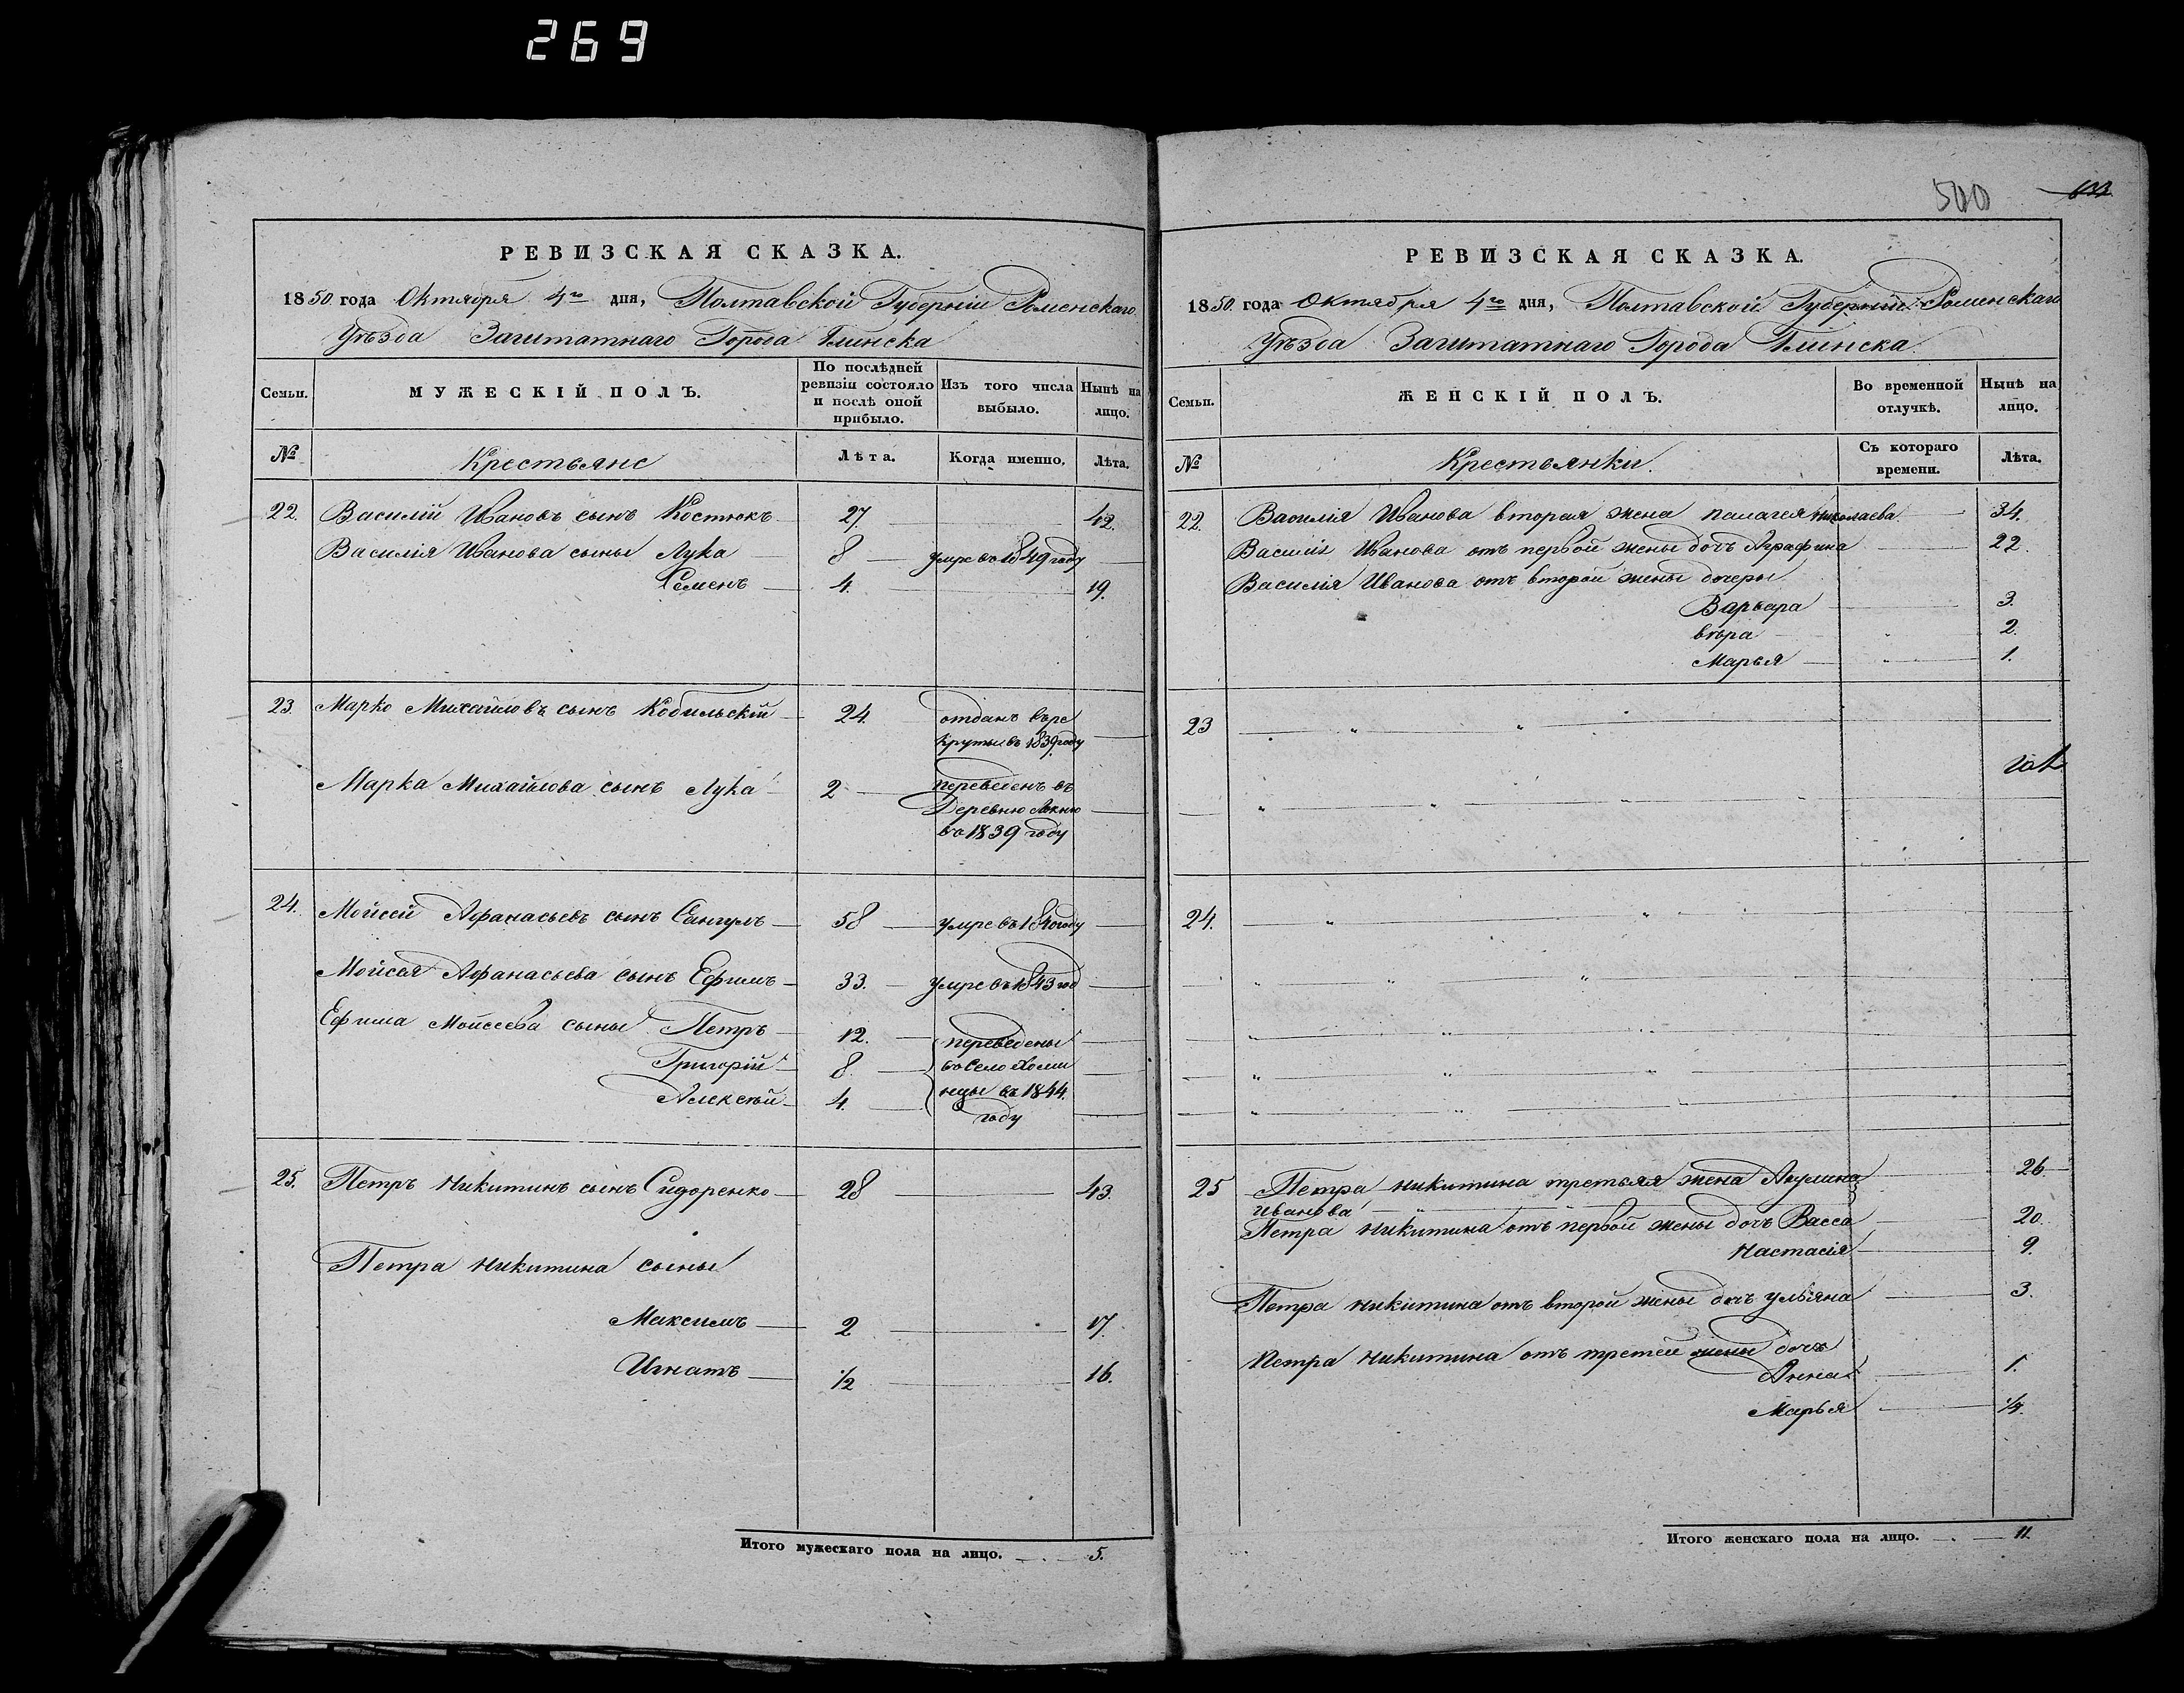 269
РЕВИЗСКАЯ СКАЗКА.
1850. года Октября 4го дня, Полтавской Губерніи Роменскаго
Уѣзда Заштатнаго Города Глинска
Семьи.
МУЖЕСКІЙ ПОЛЪ.
По послѣдней ревизіи состояло и послѣ оной прибыло.
Изъ того числа выбыло.
Нынѣ на лицо.
№
Крестьяне
Лѣта.
Когда именно.
Лѣта.
22. Василій Ивановъ сынъ Костюкъ 27. 42.
Василія Иванова сыны Лука 8 умре въ 1849 году
Семенъ 4. 19.
23. Марко Михайловъ сынъ Кобильскій 24. отданъ въ ре
круты въ 1839 году
Марка Михайлова сынъ Лука 2 переведенъ въ
Деревню
въ 1839 году
24. Мойсей Афанасьевъ сынъ Сангулъ 58 умре въ 1840 году
Мойсея Афанасьева сынъ Ефимъ 33. умре въ 1843 год
Ефима Моисеева сыны Петръ 12. переведены
Григорій 8. въ Село Холми
Алексѣй 4. нцы въ 1844.
году
25. Петръ Никитинъ сынъ Сидоренко 28 43.
Петра Никитина сыны
Максимъ 2 17.
Игнатъ 1/2 16.
Итого мужескаго пола на лицо. 5.
500 633
РЕВИЗСКАЯ СКАЗКА.
1850. года Октября 4го дня, Полтавской Губерніи Роменскаго
Уѣзда Заштатнаго Города Глинска.
Семьи.
ЖЕНСКІЙ ПОЛЪ.
Во временной отлучкѣ.
Нынѣ на лицо.
№
Крестьянки.
Съ котораго времени.
Лѣта.
22. Василія Иванова вторая жена Палагея Николаева 34.
Василія Иванова отъ первой жены дочь Аграфина 22.
Василія Иванова отъ второй жены дочеры
Варвара 3.
Вѣра 2.
Марья 1.
23
24.
25 Петра Никитина третьяя жена Акулина 26
Иванова
Петра Никитина отъ первой жены дочь Васса 20.
Настасія 9.
Петра Никитина отъ второй жены дочь Ульяна 3.
Петра Никитина отъ третей жены дочь
Анна 1.
Марья 1/4.
Итого женскаго пола на лицо. 11.